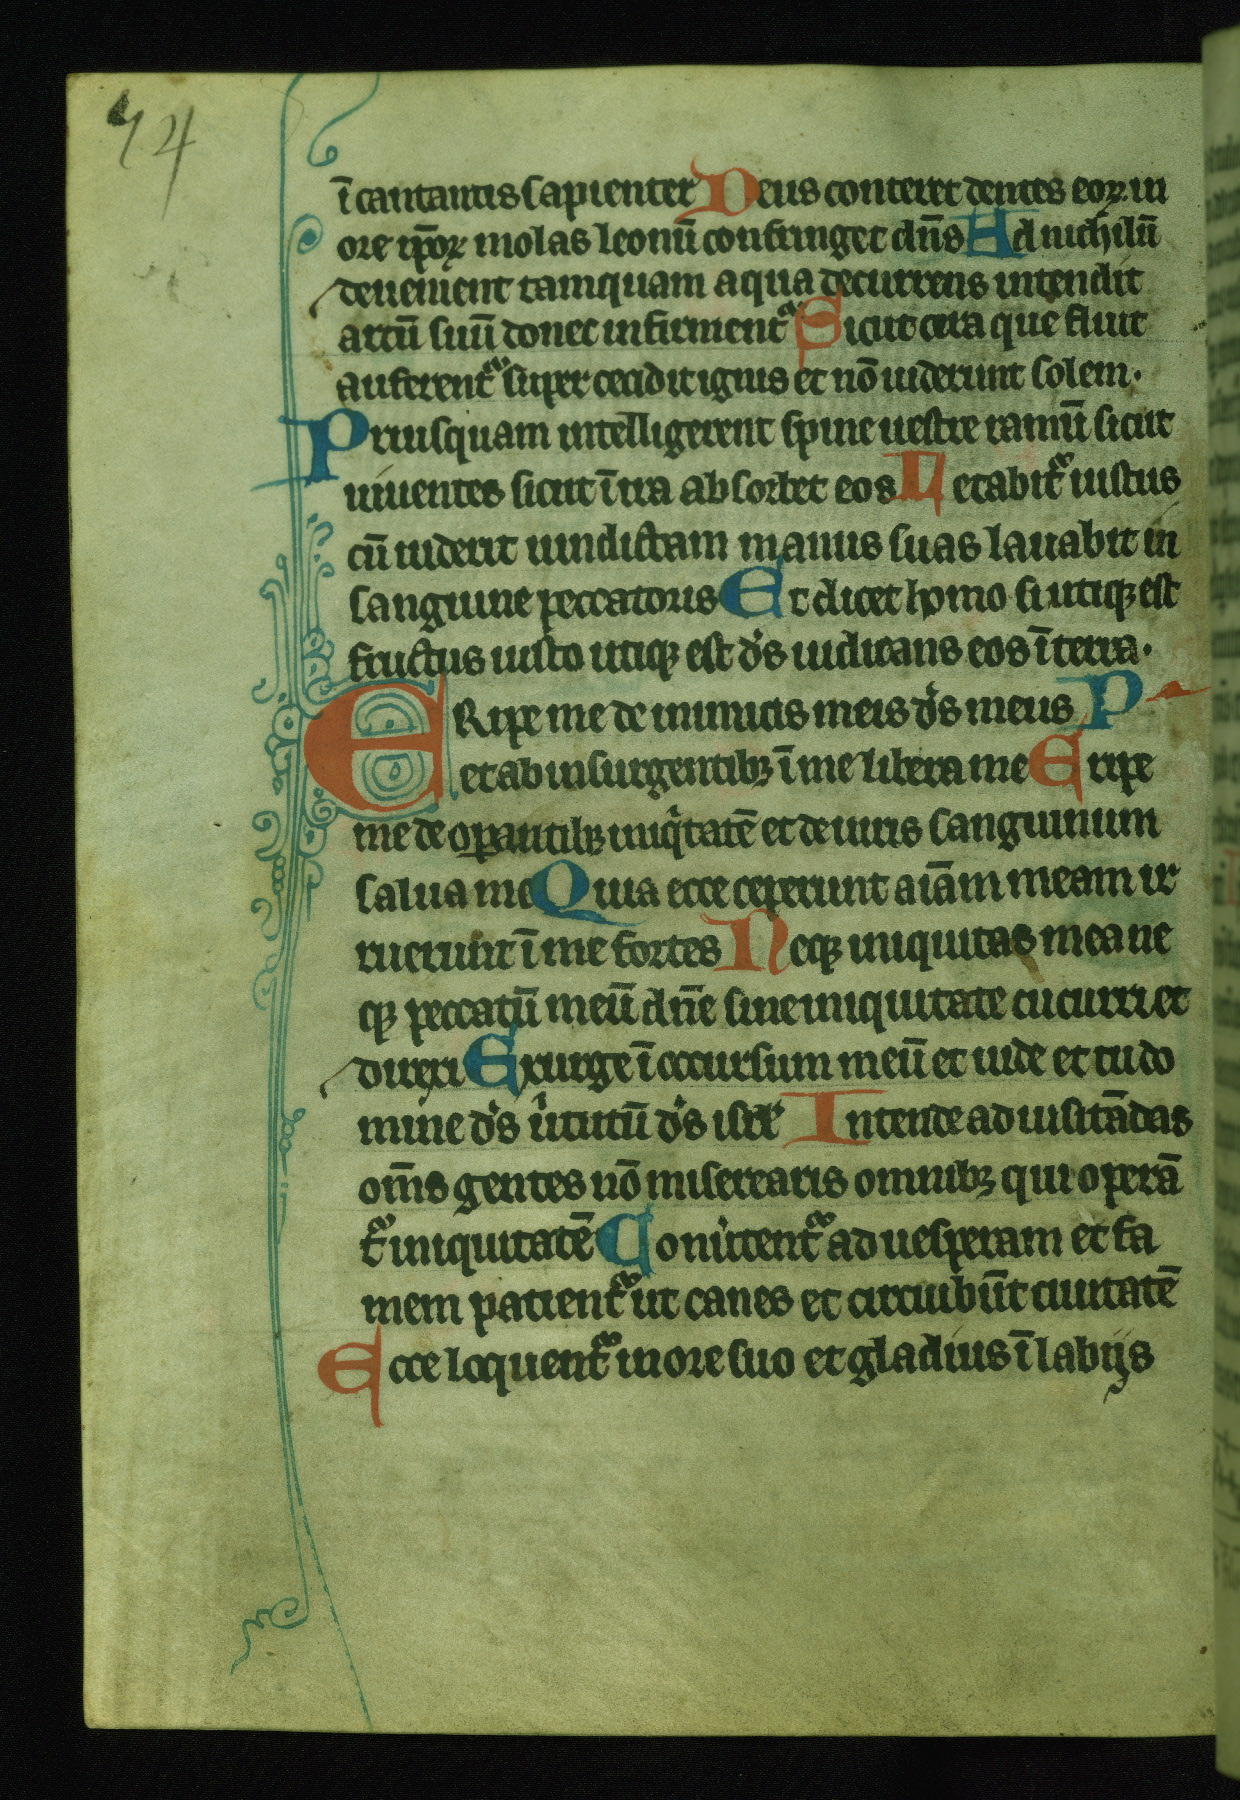 74
ī cantantis sapienter Deus conteret dentes eoꝝ in
ore ip̄oꝝ molas leonū confringet dn̄s Ad nichilū
deuenient tamquam aqua decurrens intendit
arcū suū donec infirmentᷣ Sicut cera que fluit
auferentᷣ super cecidit ignis et nō uiderunt solem.
Priusquam intelligerent spine uestre ramnū sicut
uiuentes sicut ī ira absorbet eos Letabitᷣ iustus
cū uiderit uindictam manus suas lauabit in
sanguine peccatoris Et dicet homo si utiqꝫ est
fructus iusto utiqꝫ est d's iudicans eos ī terra.
ERipe me de inimicis meis d's meus P
et ab insurgentibꝫ ī me libera me Eripe
me de operantibꝫ iniq'tatē et de uiris sanguinum
salua me Quia ecce ceperunt aīam meam ir
ruerunt ī me fortes Neqꝫ iniquitas mea ne
qꝫ peccatū meū dn̄e sine iniquitate cucurri et
direxi Exurge ī occursum meū et uide et tu do
mine d's u'tutū d's isrl' Intende ad uisitādas
om̄s gentes nō miserearis omnibꝫ qui operā
tᷣ iniquitatē Conu'tentᷣ ad uesperam et fa
mem patientᷣ ut canes et circuibūt ciuitatē
Ecce loquentᷣ in ore suo et gladius ī labijs